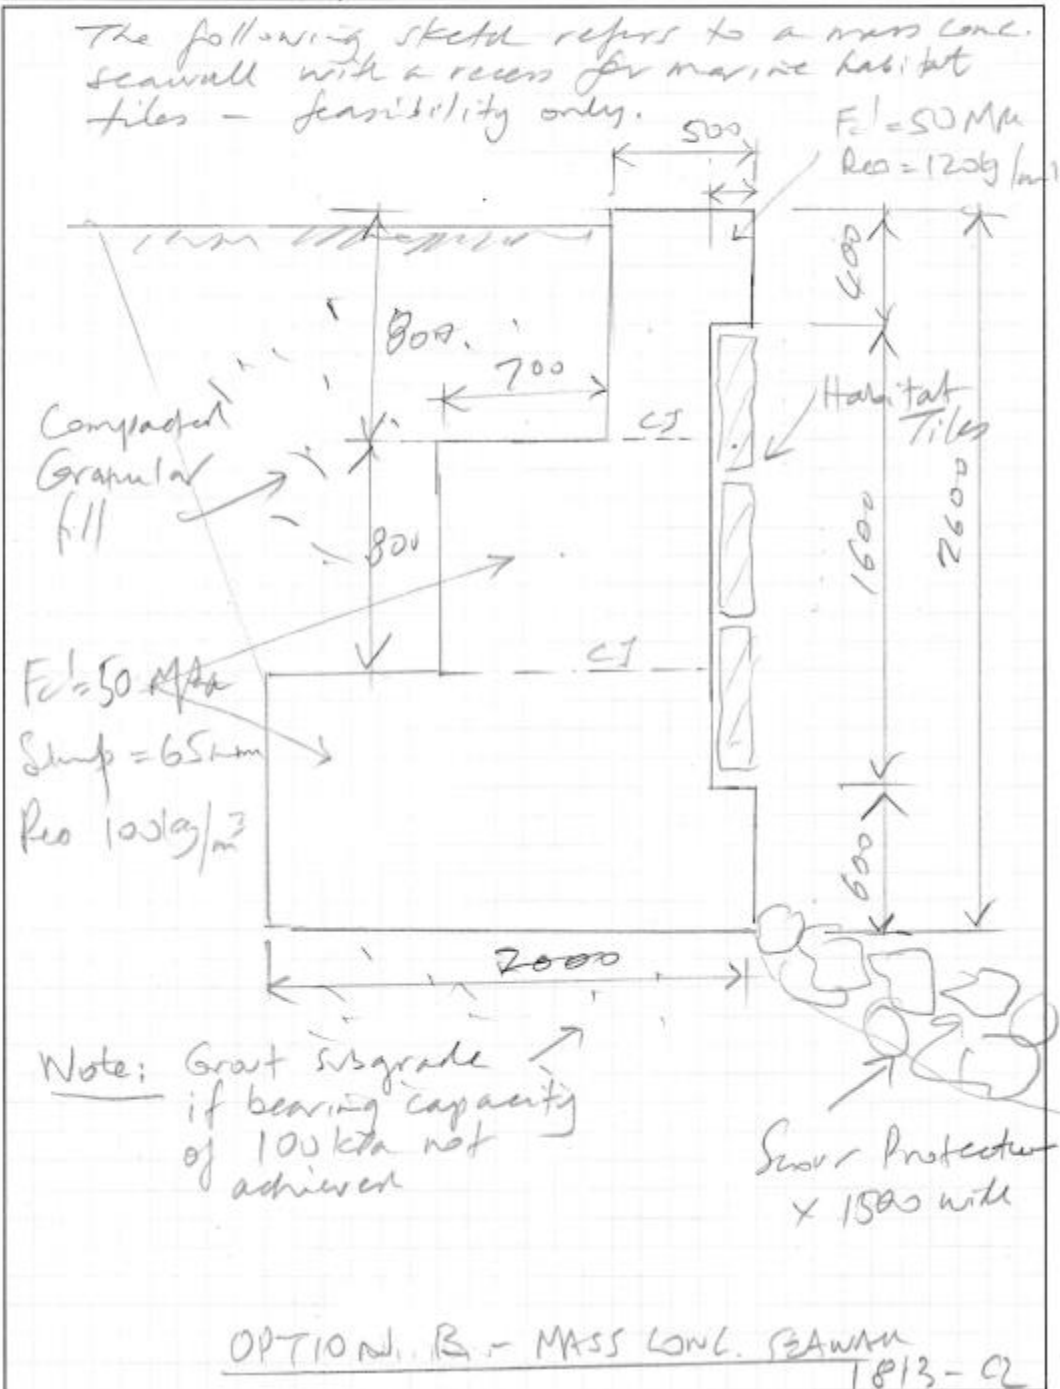 The following sketch refers to a mass conc.
seawall with a recess for marine habitat
tiles - feasibility only.
500
Fc'=50 MPa
Reo = 120kg/m³
400
800.
700
Habitat
Tiles
CJ
Compacted
Granular
fill
1600
2600
800
CJ
Fc'=50 MPa
Slump = 65mm
Reo 100kg/m³
600
2000
Note: Grout subgrade
if bearing capacity
of 100 kPa not
achieved
Scour Protection
x 1500 wide
OPTION B - MASS CONC. SEAWALL
1813-C2